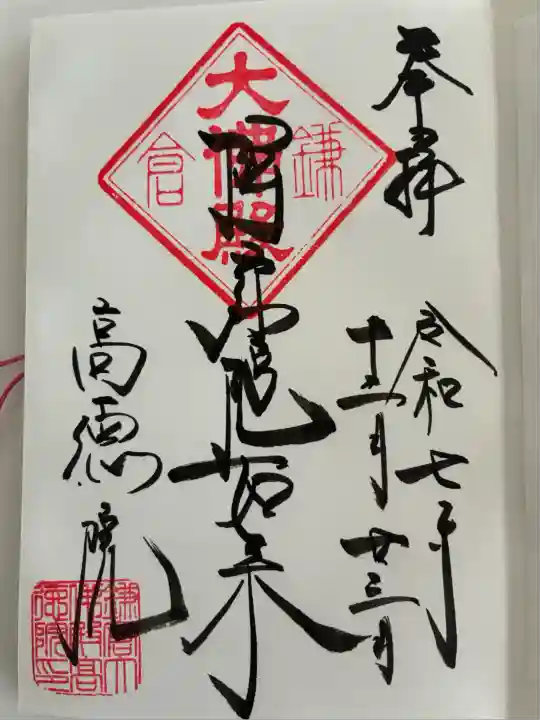 奉拝
令和七年
十二月廿三日
鎌倉
大佛殿
阿弥陀如来
高徳院